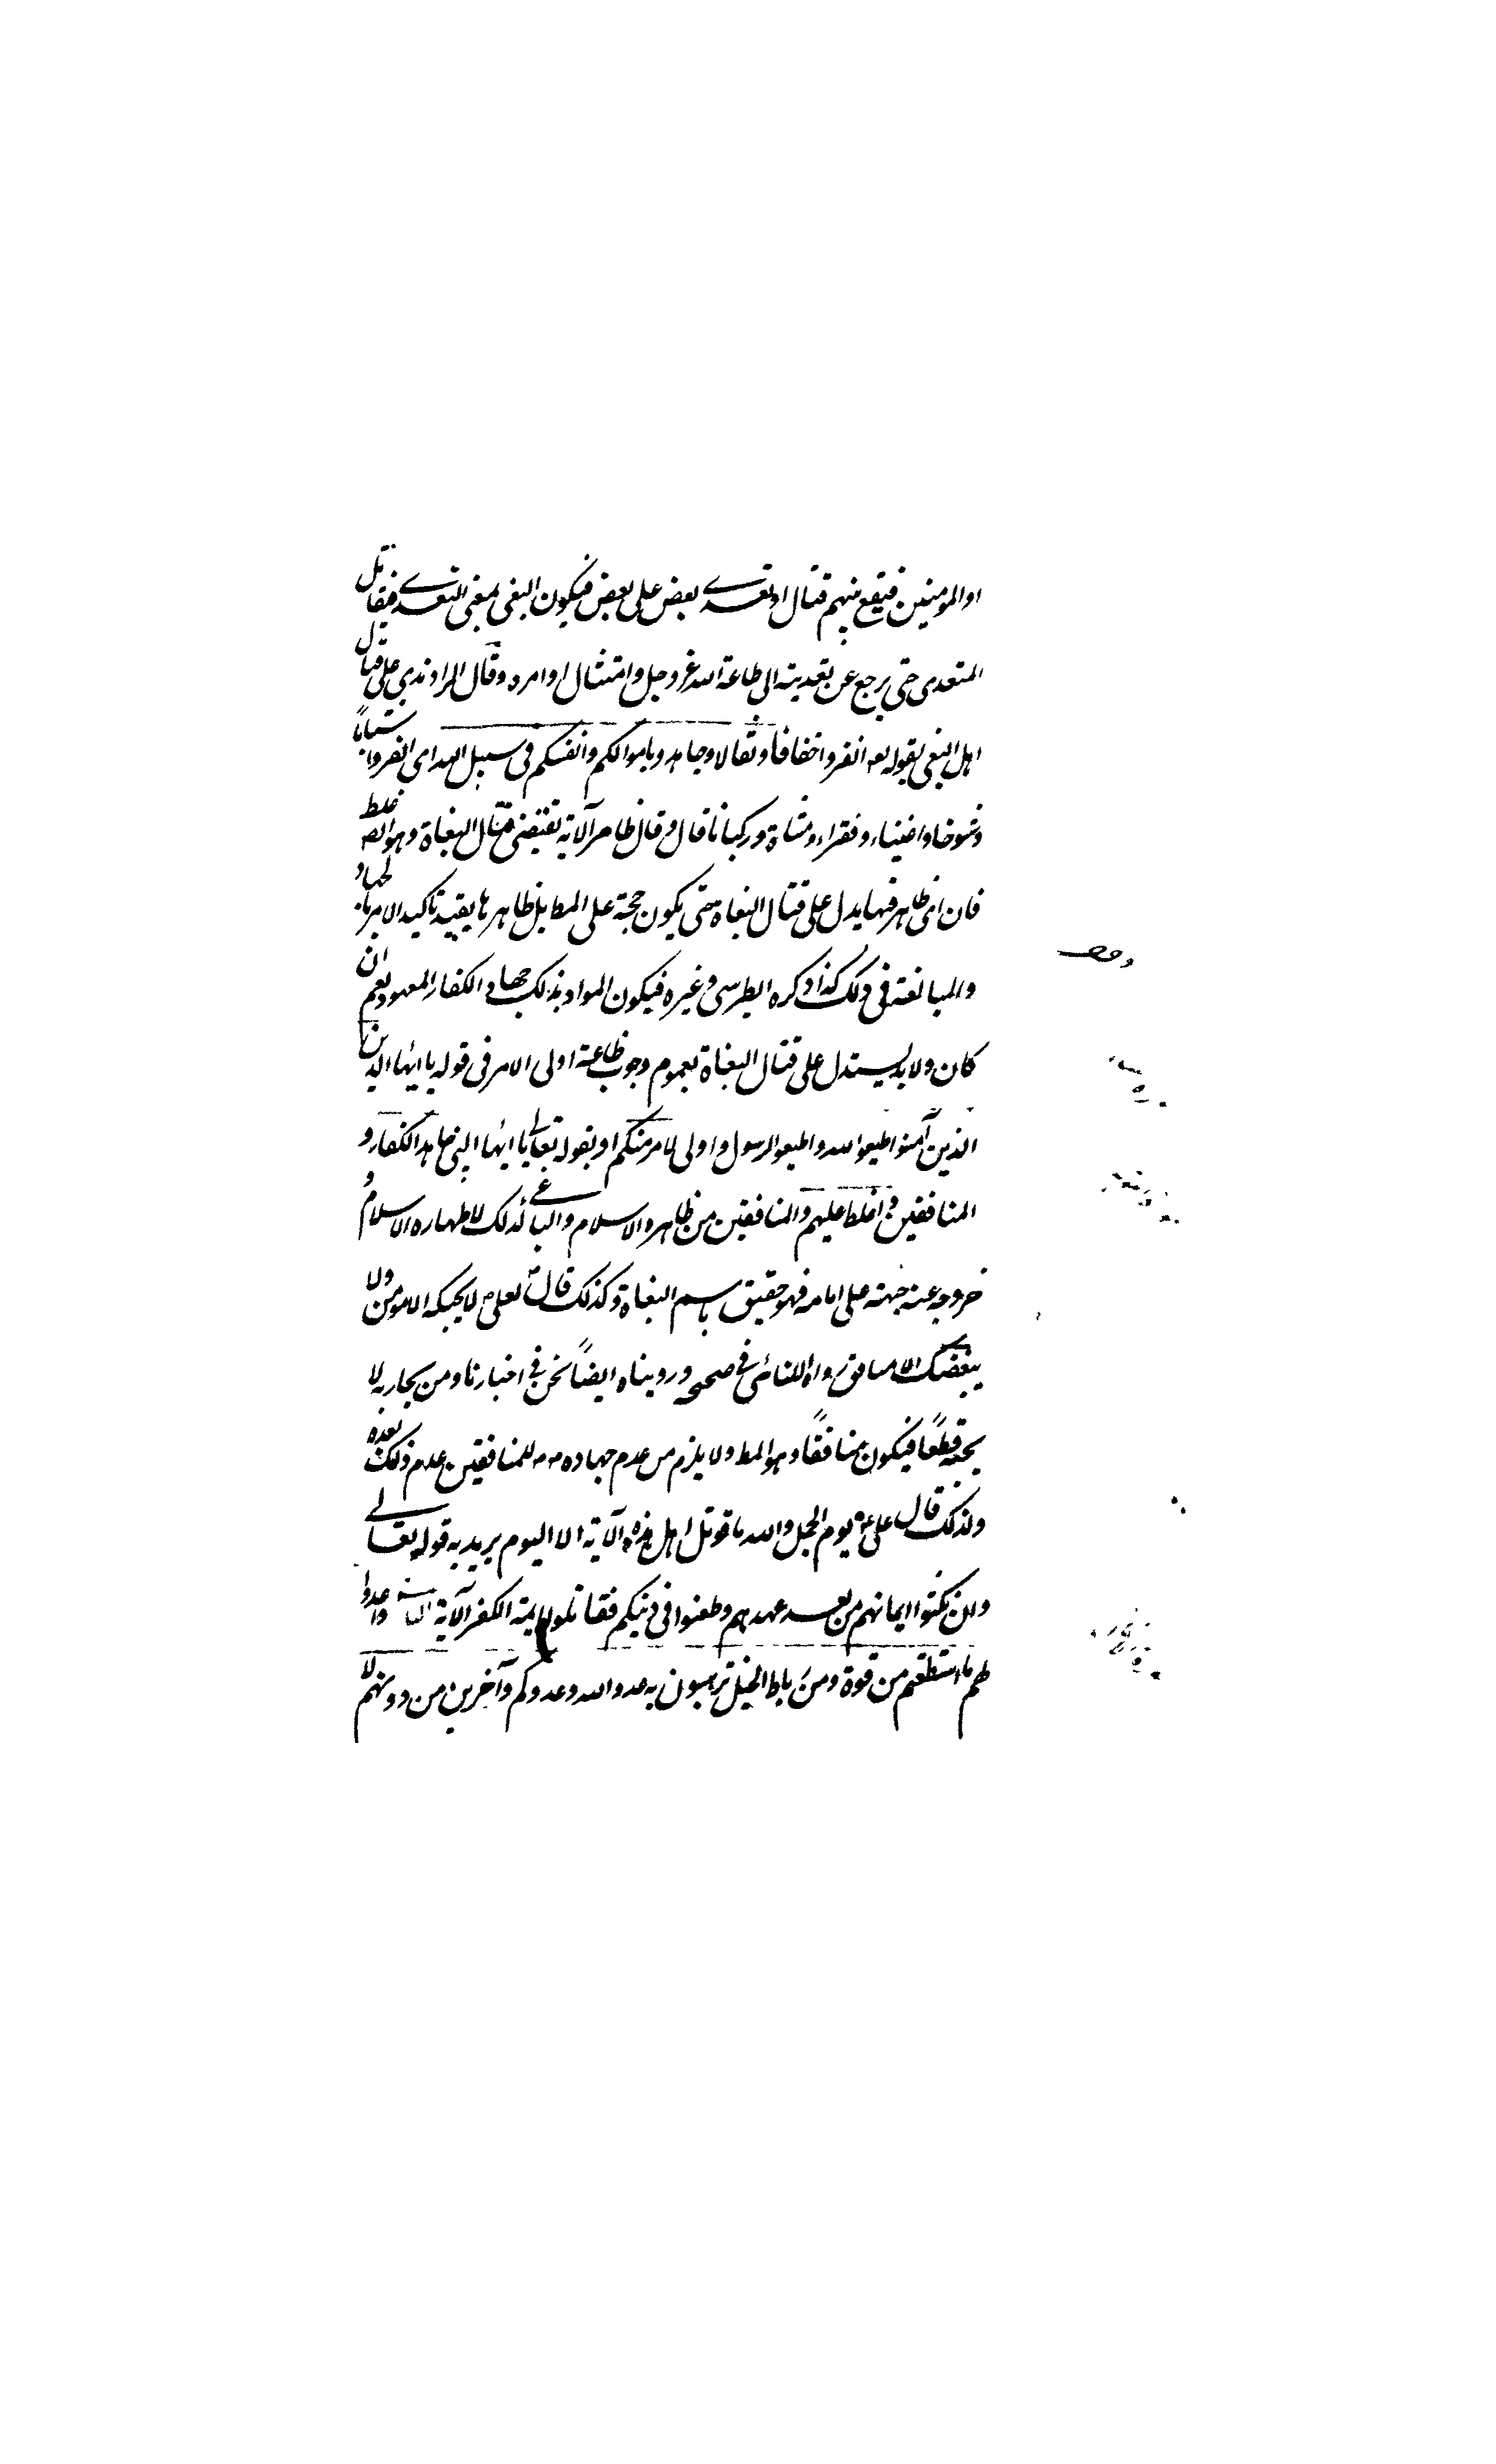 او المومنين فيقع بينهم قتال او تعدى بعض على بعض فيكون البغى بمعنى التعدى فيقاتل
المتعدى حتى يرجع عن تعديته الى طاعة الله عزوجل وامتثال اوامره وقال الراوندي على قتال
اهل البغى بقوله تعه انفروا خفافا وثقالا وجاهدوا باموالكم وانفسكم فى سبيل الله اى انفروا شبابًا
وشيوخا واغنياء وفقراء ومشاة وركبانا قال وقال ظاهر الآية تقتضى قتال البغاة وهو غلط
فان اى ظاهر فيها يدل على قتال البغاة حتى يكون حجة على المط بل ظاهرها يفيد تاكيد الامر بالجهاد
والمبالغة فى ذلك كذا ذكره الطبرسى وغيره فيكون المراد بذلك جهاد الكفار المعهود نعم ان
كان ولابد يستدل على قتال البغاة بعموم وجوب طاعة اولى الامر فى قوله يا ايها الذين
الذين آمنوا اطيعوا الله واطيعوا الرسول واولى الامر منكم او بقوله تعالى يا ايها النبى جاهد الكفار و
المنافقين واغلظ عليهم والمنافقين من ظاهره الاسلام والباغى كذلك لاظهاره الاسلام و
خروجه عنه على امامه فهو حقيق باسم البغاة وكذلك قال لعلى لا يحبك الا مومن ولا
يبغضك الا منافق رواه النسائى فى صحيحه ورويناه ايضًا نحن فى اخبارنا ومن يحاربه لا
يحبه قطعًا فيكون منافقًا وهو المط ولا يلزم من عدم جهاده للمنافقين عدم ذلك بعده
ولذلك قال على يوم الجمل والله ما قوتل اهل هذه الآية الا اليوم يريد به قوله تعالى
وان نكثوا ايمانهم من بعد عهدهم وطعنوا فى دينكم فقاتلوا ايمة الكفر الآية واعدوا
لهم ما استطعتم من قوة ومن رباط الخيل ترهبون به عدو الله وعدوكم وآخرين من دونهم لا